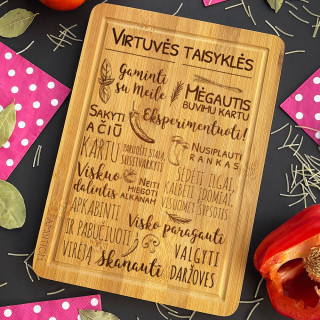 Virtuvės taisyklės
Gaminti
su Meile
Mėgautis
buvimu kartu
Sakyti
ačiū
Eksperimentuoti!
Kartu
paruošti stalą,
susitvarkyti
Nusiplauti
rankas
Viskuo
dalintis
Neiti
miegoti
alkanam
Sėdėti ilgai,
kalbėti įdomiai,
visuomet šypsotis
Apkabinti
ir pabučiuoti
virėją
Visko paragauti
Valgyti
daržoves
Skanauti